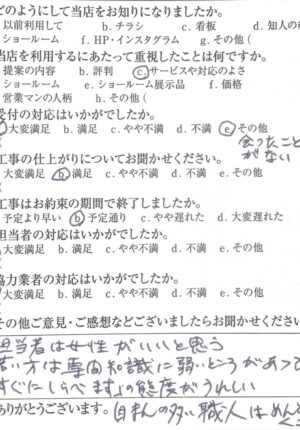 どのようにして当店をお知りになりましたか。
以前利用して b. チラシ c. 看板 d. 知人の
ショールーム f. HP・インスタグラム g. その他(
当店を利用するにあたって重視したことは何ですか。
提案の内容 b. 評判 c. サービスや対応のよさ
ショールーム e. ショールーム展示品 f. 価格
営業マンの人柄 h. その他(
受付の対応はいかがでしたか。
大変満足 b. 満足 c. やや不満 d. 不満 e. その他
会ったこと
がない
工事の仕上がりについてお聞かせください。
大変満足 b. 満足 c. やや不満 d. 不満 e. その他
工事はお約束の期間で終了しましたか。
予定より早い b. 予定通り c. やや遅れた d. 大変遅れた
担当者の対応はいかがでしたか。
大変満足 b. 満足 c. やや不満 d. 不満 e. その他
協力業者の対応はいかがでしたか。
大変満足 b. 満足 c. やや不満 d. 不満 e. その他
その他ご意見・ご感想などございましたらお聞かせください
担当者は女性がいいと思う
若い方は専門知識に弱いところがあって
すぐにしらべます」の態度がうれしい
ありがとうございます。 自まんの多い職人はめんど